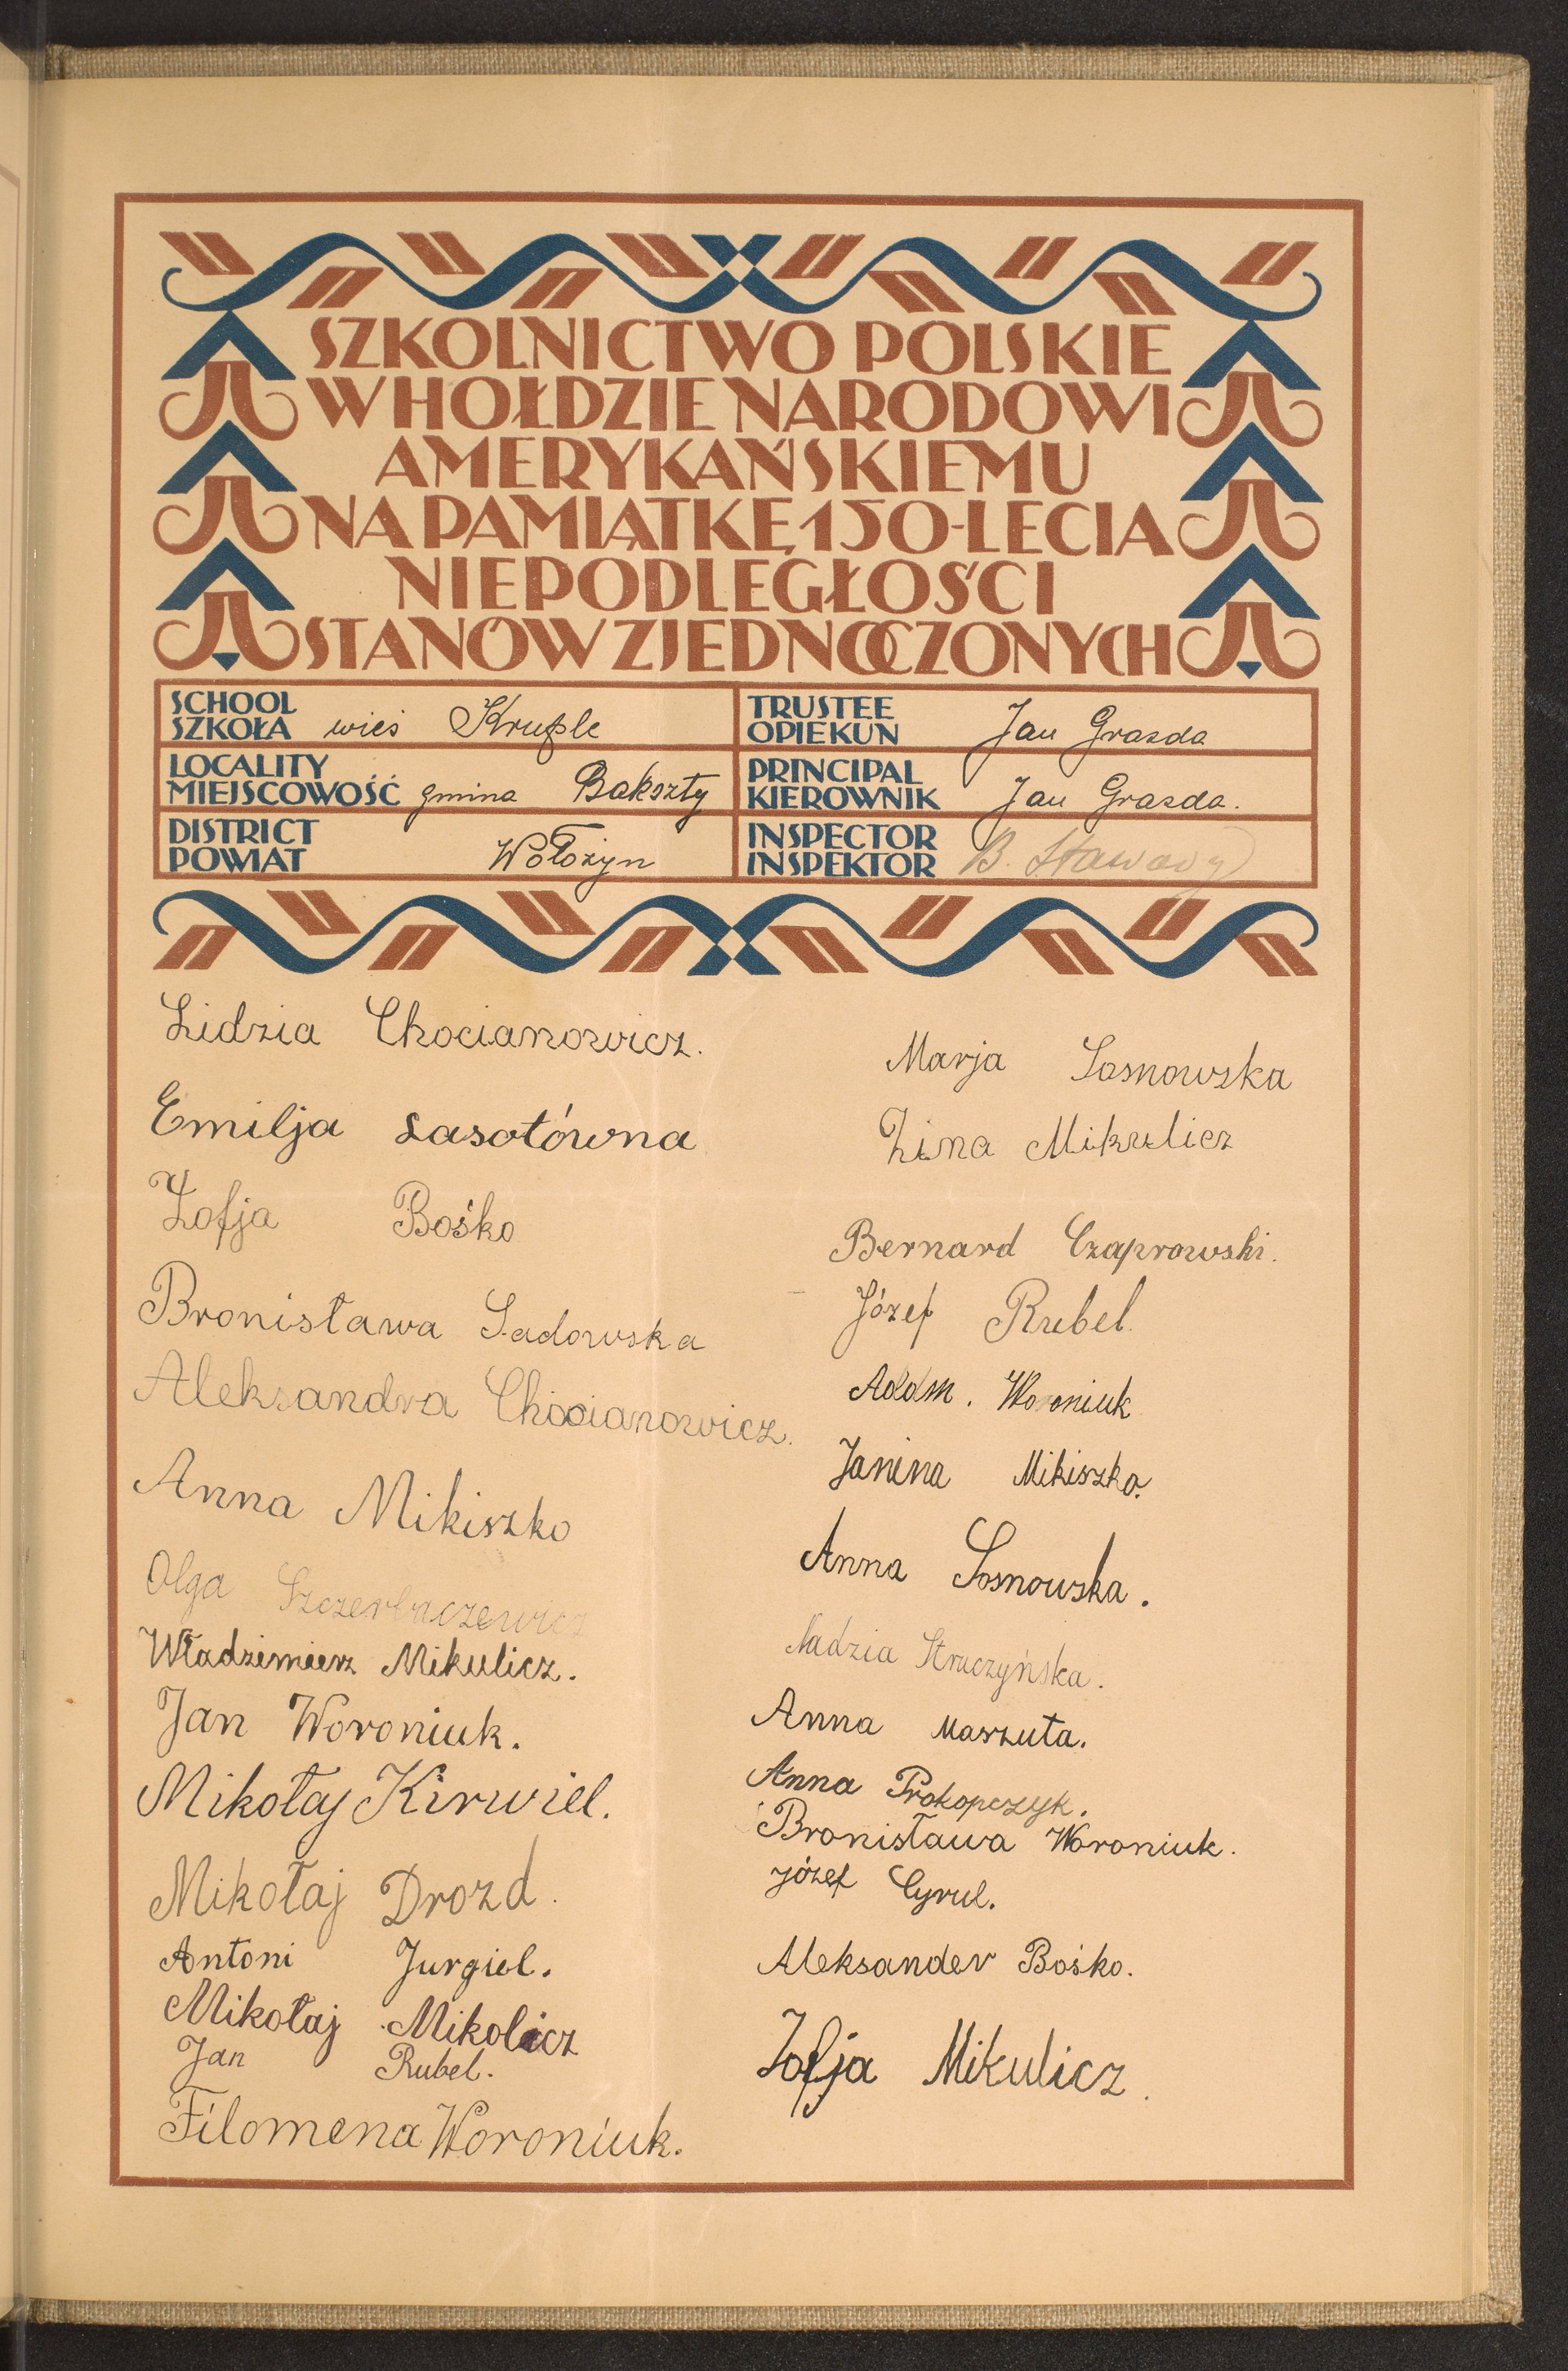 SZKOLNICTWO POLSKIE
W HOŁDZIE NARODOWI
AMERYKAŃSKIEMU
NA PAMIĄTKĘ 150-LECIA
NIEPODLEGŁOŚCI
STANÓW ZJEDNOCZONYCH
SCHOOL
SZKOŁA wieś Kruple
LOCALITY
MIEJSCOWOŚĆ gmina Bakszty
DISTRICT
POWIAT Wołożyn
TRUSTEE
OPIEKUN Jan Grazda
PRINCIPAL
KIEROWNIK Jan Grazda.
INSPECTOR
INSPEKTOR B.
Lidzia Chocianowicz.
Emilja Lasotówna
Zofja Bośko
Bronisława Sadowska
Aleksandra Chocianowicz.
Anna Mikiszko
Olga Szczerbaczewicz
Władzimierz Mikulicz.
Jan Woroniuk.
Mikołaj Kirwiel.
Mikołaj Drozd.
Antoni Jurgiel.
Mikołaj Mikolicz
Jan Rubel.
Filomena Woroniuk.
Marja Sosnowska
Zina Mikulicz
Bernard Czaprowski.
Józef Rubel.
Adam. Woroniuk
Janina Mikiszko.
Anna Sosnowska.
Nadzia Struczyńska.
Anna Maszuta.
Anna Prokopczyk.
Bronisława Woroniuk.
Józef Cyrul.
Aleksander Bośko.
Zofja Mikulicz.